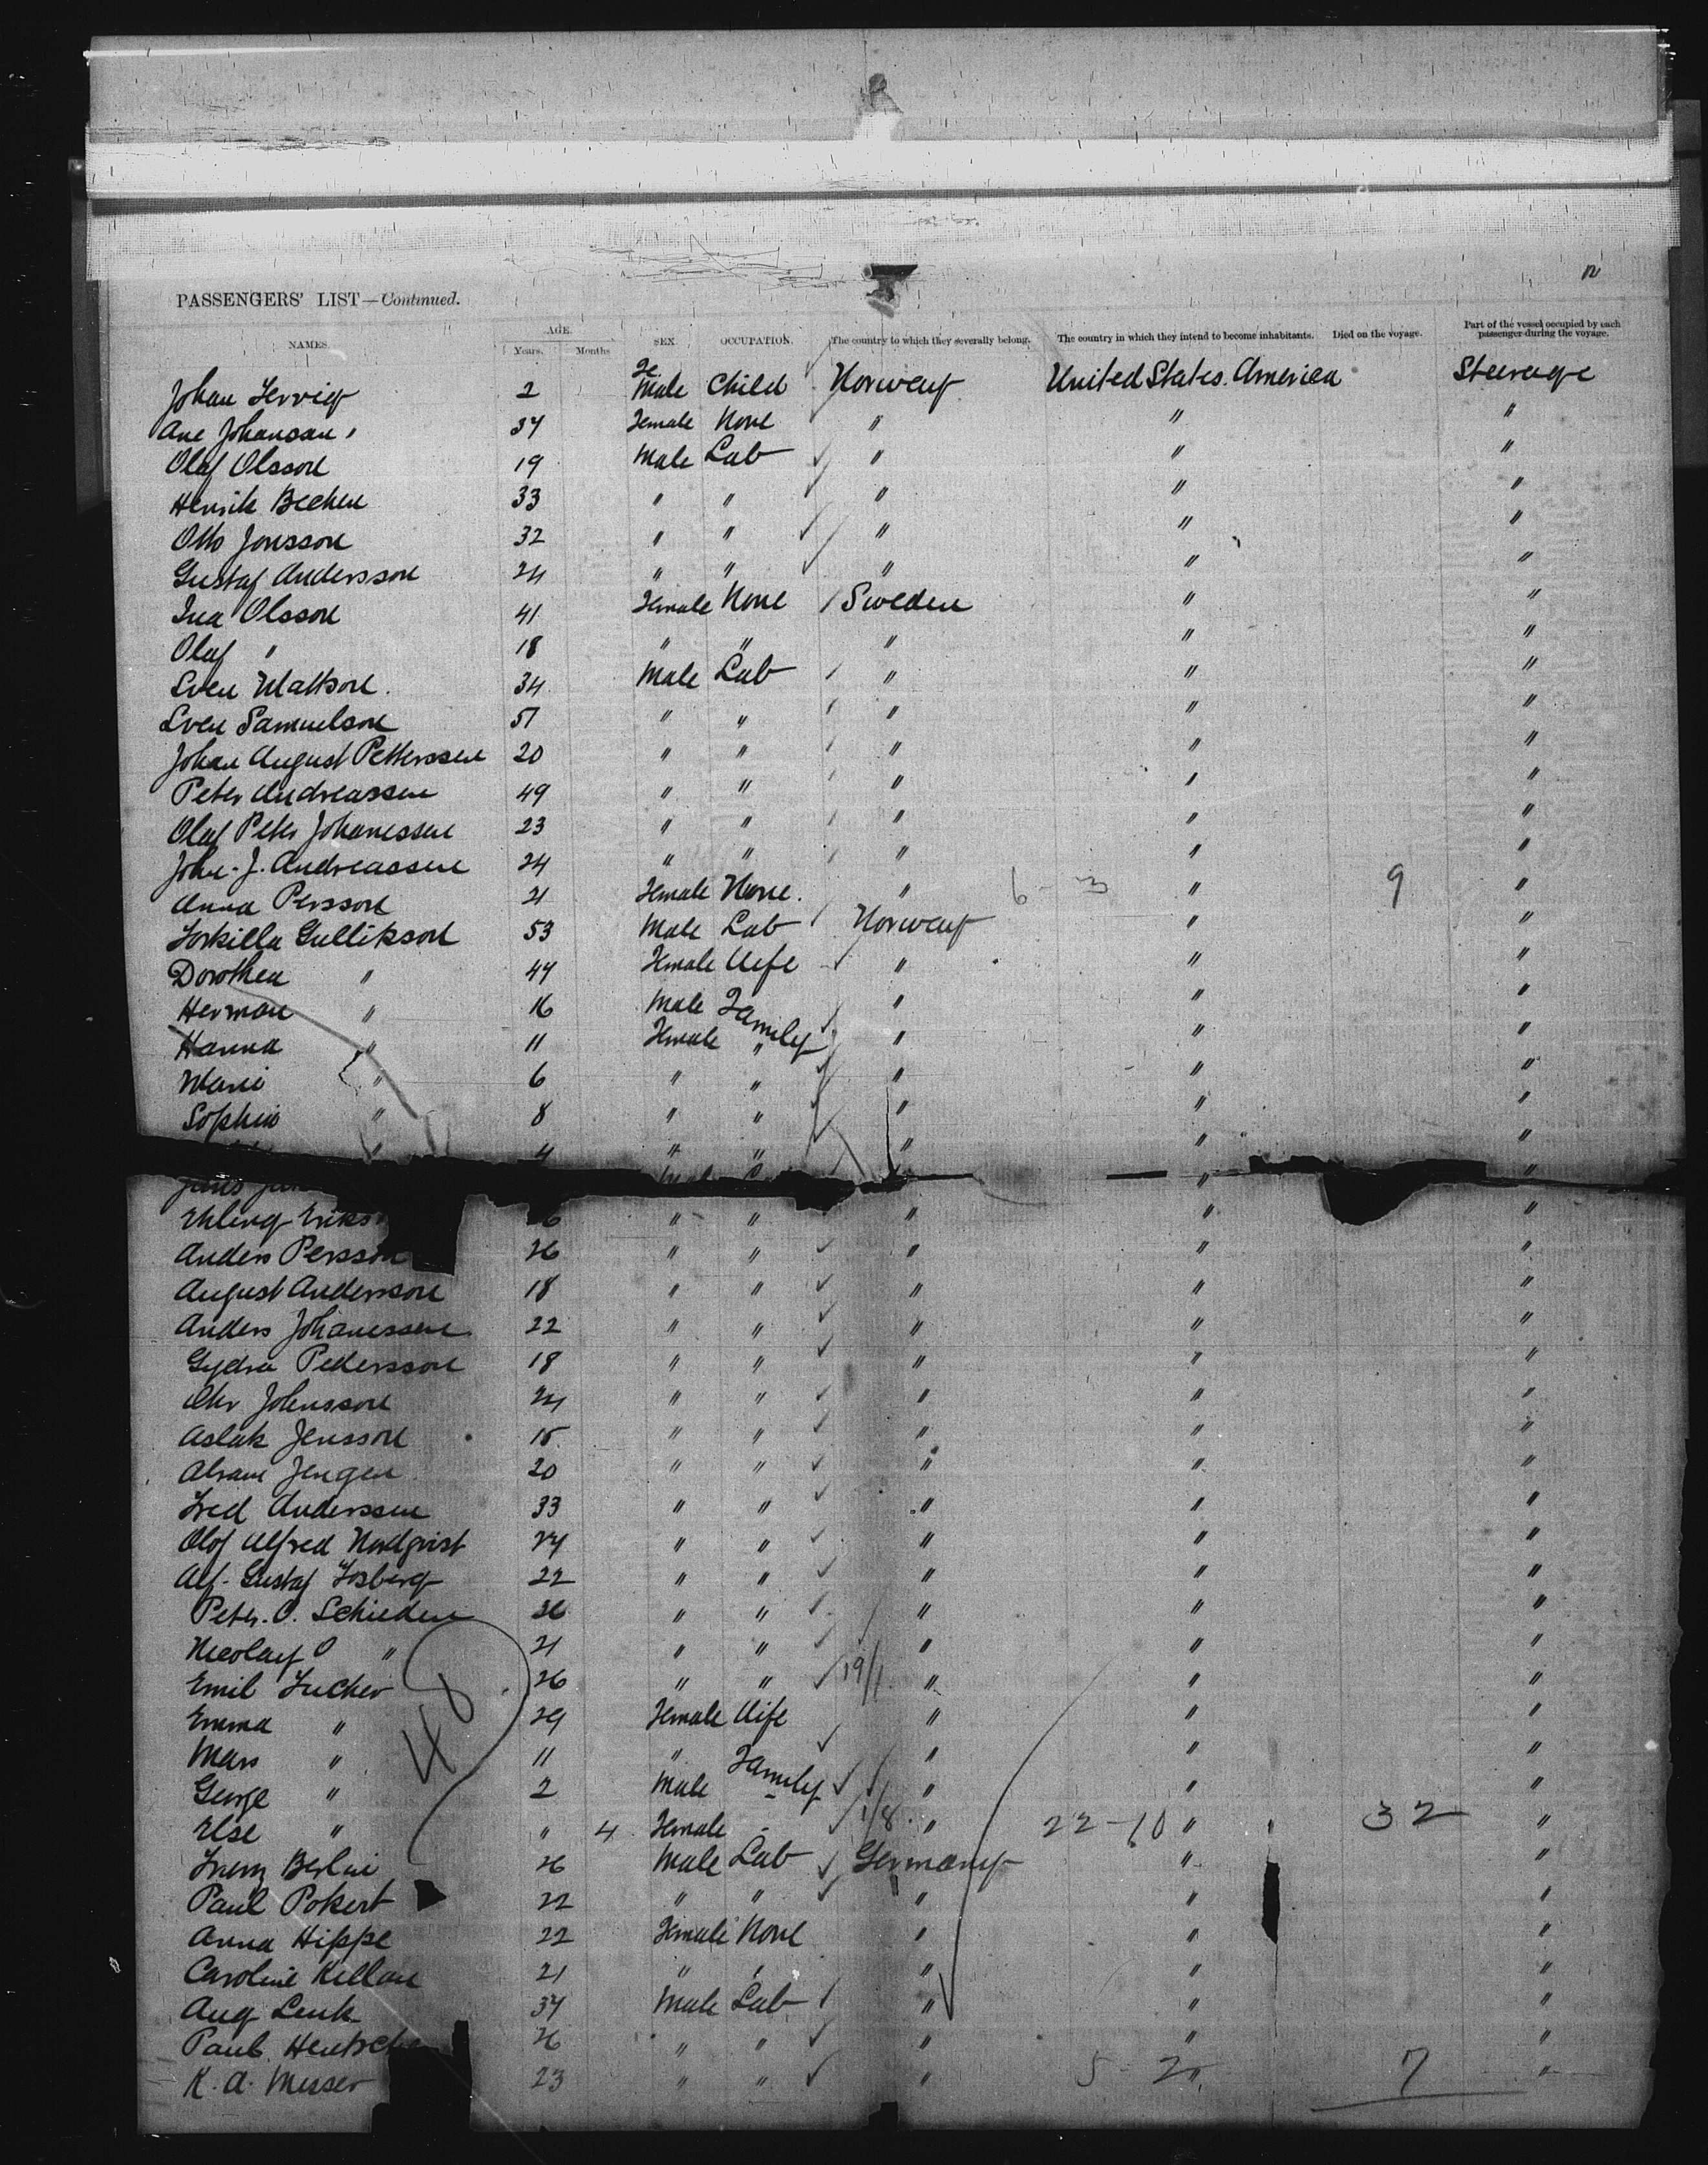 PASSENGERS' LIST—Continued.
NAMES. AGE. Years. Months SEX OCCUPATION. The country to which they severally belong. The country in which they intend to become inhabitants. Died on the voyage. Part of the vessel occupied by each passenger during the voyage.
Johan 2 Fe Male Child Norway United States America Steerage
Ane Johansan 34 Female None " " "
Olaf Olsson 19 Male Lab " " "
Henrik Becken 33 " " " " "
Otto Jonsson 32 " " " " "
Gustaf Andersson 24 " " " " "
Ina Olsson 41 Female None Sweden " "
Olaf " 18 " " " " "
Sven Mattson 34 Male Lab " " "
Sven Samuelson 51 " " " " "
Johan August Petterssen 20 " " " " "
Peter Andreassen 49 " " " " "
Olaf Peter Johanessen 23 " " " " "
John. J. Andreassen 24 " " " " "
Anna Persson 21 Female None. " 6 - 3 " 9 "
Torkilla Gullikson 53 Male Lab Norway " "
Dorothea " 44 Female Wife " " "
Herman " 16 Male Family " " "
Hanna " 11 Female " " " "
Marie " 6 " " " " "
Sophia " 8 " " " " "
" 4 " " " " "
" "
Ehling Eriks 6 " " " " "
Anders Persson 26 " " " " "
August Andersson 18 " " " " "
Anders Johanessen 22 " " " " "
Gydra Pedersson 18 " " " " "
Chr Johnsson 24 " " " " "
Aslak Jensson 15 " " " " "
Abram Jengen 20 " " " " "
Fred Anderssen 33 " " " " "
Olof Alfred Nordqvist 24 " " " " "
Alf. Gustaf Fosberg 22 " " " " "
Peter. O. Schieden 36 " " " " "
Nicolay O " 21 " " " " "
Emil Fucher 26 " " 19/1 " " "
Emma " 29 Female Wife " " "
Mars " 11 " Family " " "
George " 2 Male " " " "
Else " " 4 Female " 1/8 " 22-10 " 32 "
48
Berlin 26 Male Lab Germany " "
Paul Pokert 22 " " " " "
Anna Hippe 22 Female None " " "
Caroline Killan 21 " " " " "
Aug Lenk 34 Male Lab " " "
Paul Hentsche 26 " " " " "
K. A. Messer 23 " " " 5 - 2 " 7 "